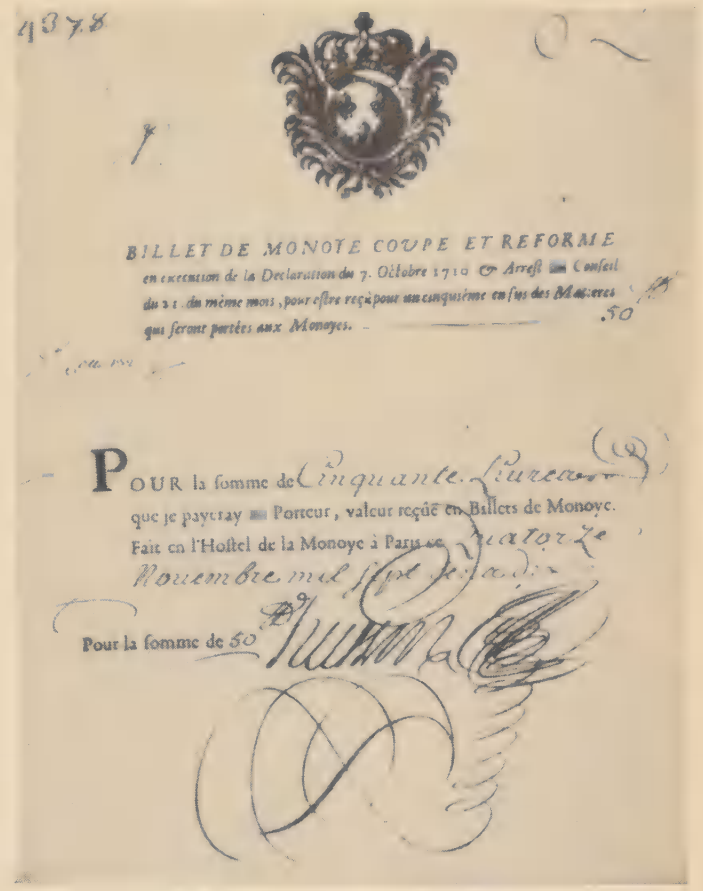 4378
BILLET DE MONOYE COUPE ET REFORME
en execution de la Declaration du 7. Octobre 1710 & Arrest Conseil
du 21. du même mois, pour estre reçû pour un cinquième en sus des Matieres
qui seront portées aux Monoyes.
50
POUR la somme de Cinquante Liures
que je payeray au Porteur, valeur reçûë en Billets de Monoye.
Fait en l'Hostel de la Monoye à Paris ce quatorze
Nouembre mil sept cens dix
Pour la somme de 50